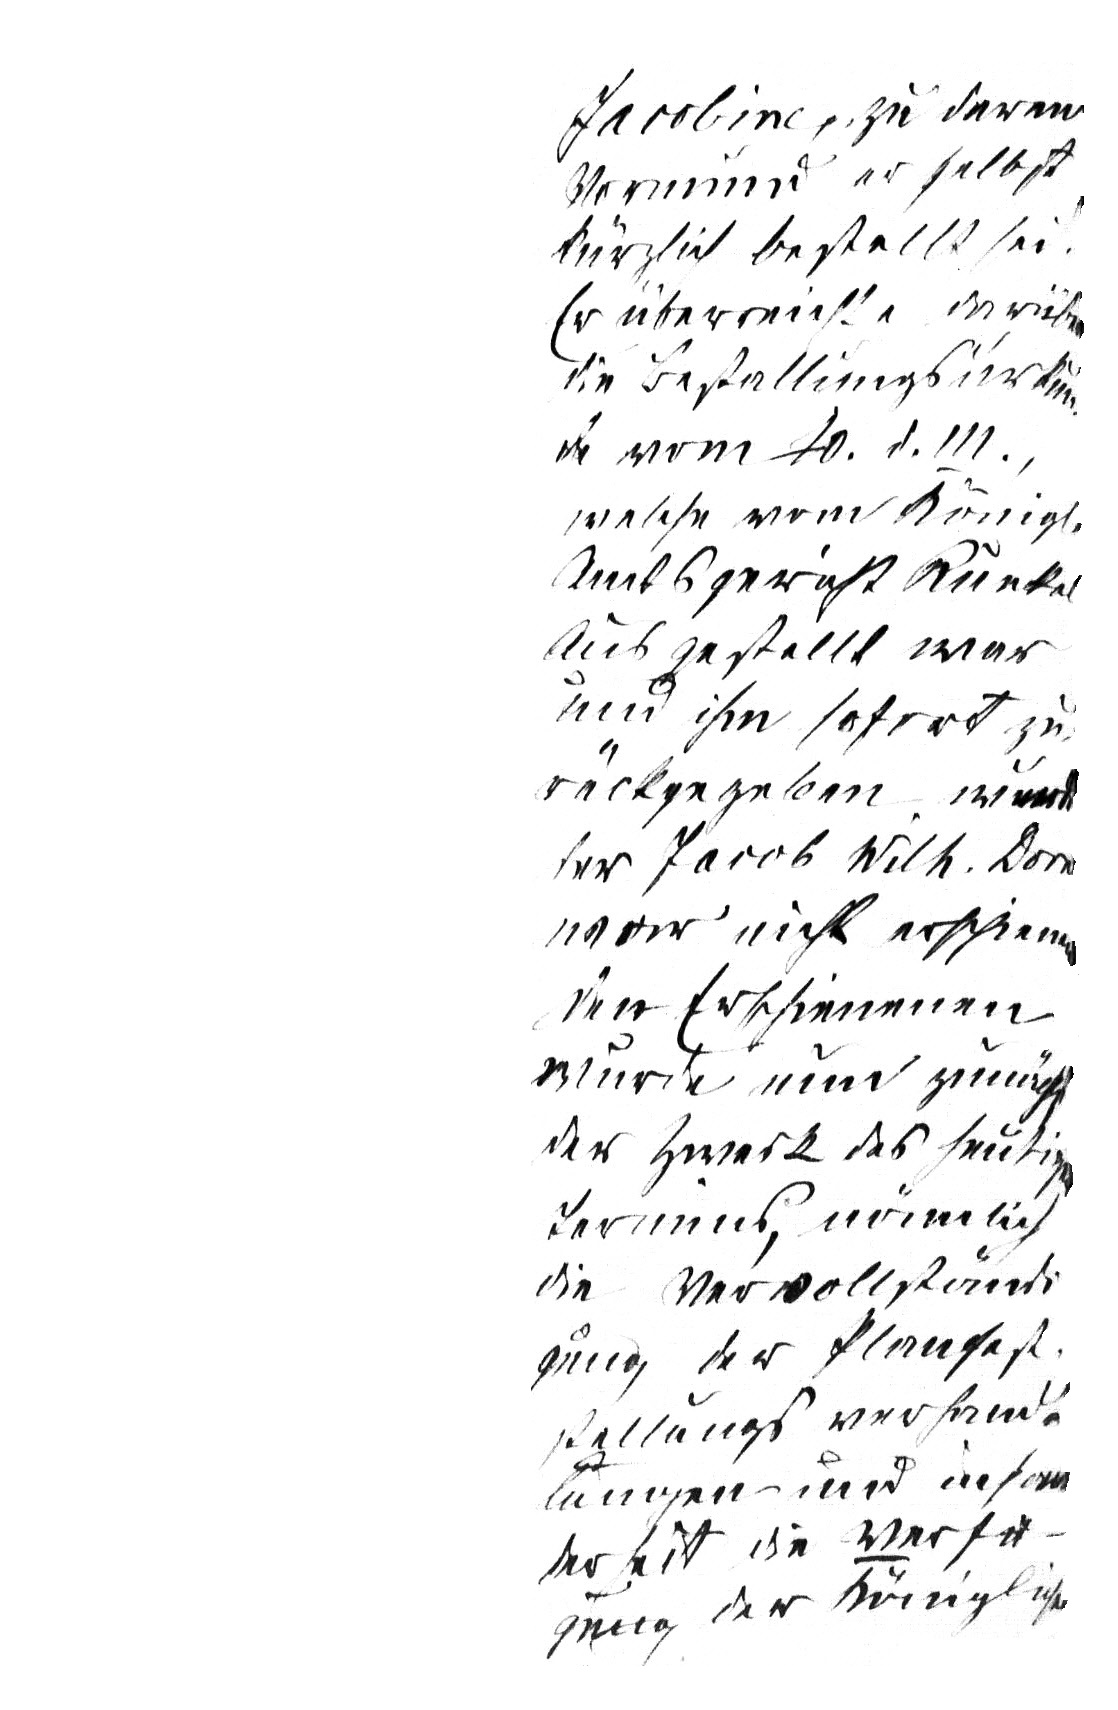 Jacobine, zu deren
Vormund er selbst
kürzlich bestellt sei.
Er überreichte darüber
die Bestallungsurkun-
de vom 10. d. M.,
welche vom Königl.
Amtsgericht Runkel
ausgestellt war
und ihm sofort zu-
rückgegeben wurde
der Jacob Wilh. Dorn
war nicht erschienen
den Erschienenen
wurde nun zunächst
der Zweck des heutigen
Termins, nämlich
die Vervollständi
gung der Planfest-
stellungsverhand-
lungen und inson
derheit die Verfü-
gung der Königlichen